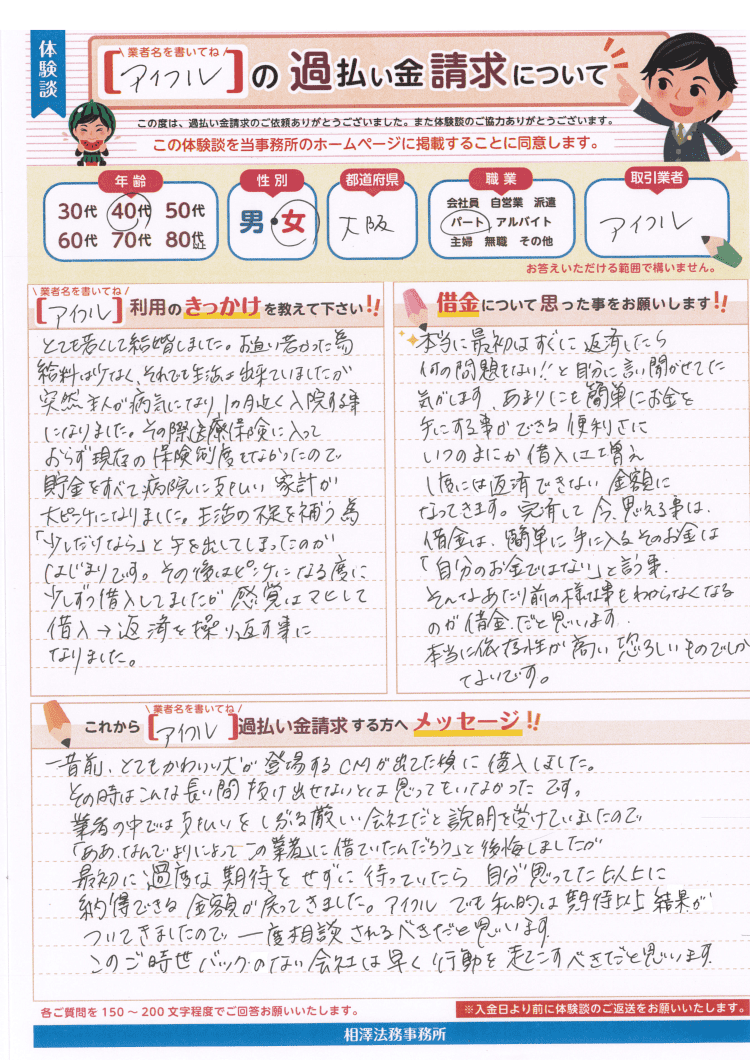 体験談
\業者名を書いてね/
[アイフル]の過払い金請求について
この度は、過払い金請求のご依頼ありがとうございました。また体験談のご協力ありがとうございます。
この体験談を当事務所のホームページに掲載することに同意します。
年齢 性別 都道府県 職業 取引業者
30代 40代 50代
60代 70代 80代以上
男・女
大阪
会社員 自営業 派遣
パート アルバイト
主婦 無職 その他
アイフル
お答えいただける範囲で構いません。
\業者名を書いてね/
[アイフル]利用のきっかけを教えて下さい!!
とても若くして結婚しました。お互い若かった為
給料は少なく、それでも生活は出来ていましたが
突然主人が病気になり1カ月近く入院する事
になりました。その際医療保険に入って
おらず現在の保険制度でなかったので
貯金をすべて病院に支払い家計が
大ピンチになりました。生活の不足を補う為
「少しだけなら」と手を出してしまったのが
はじまりです。その後はピンチになる度に
少しずつ借入してましたが感覚はマヒして
借入→返済を繰り返す事に
なりました。
借金について思った事をお願いします!!
本当に最初はすぐに返済したら
何の問題もない!!と自分に言い聞かせてた
気がします。あまりにも簡単にお金を
手にする事ができる便利さに
いつのまにか借入は増え
1度には返済できない金額に
なってきます。完済して今、思える事は、
借金は、簡単に手に入るそのお金は
「自分のお金ではない」と言う事、
そんなあたり前の様な事もわからなくなる
のが借金だと思います。
本当に依存性が高い恐ろしいものでしか
ないです。
\業者名を書いてね/
これから[アイフル]過払い金請求する方へメッセージ!!
一昔前、とてもかわいい犬が登場するCMが出てた頃に借入しました。
その時はこんな長い間抜け出せないとは思ってもいなかったです。
業者の中では支払いをしぶる厳しい会社だと説明を受けていましたので
「ああ、なんでよりによってこの業者に借りていたんだろう」と後悔しましたが
最初に過度な期待をせずに待っていたら自分が思ってた以上に
納得できる金額が戻ってきました。アイフルでも私的には期待以上結果が
ついてきましたので、一度相談されるべきだと思います。
このご時世バックのない会社は早く行動を起こすべきだと思います。
各ご質問を150～200文字程度でご回答お願いいたします。
※入金日より前に体験談のご返送をお願いいたします。
相澤法務事務所